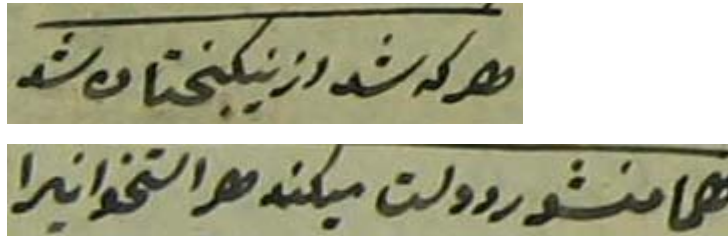 هر که شد از نیکبختان ده شد
هما منشور دولت میکند هر استخوانیرا